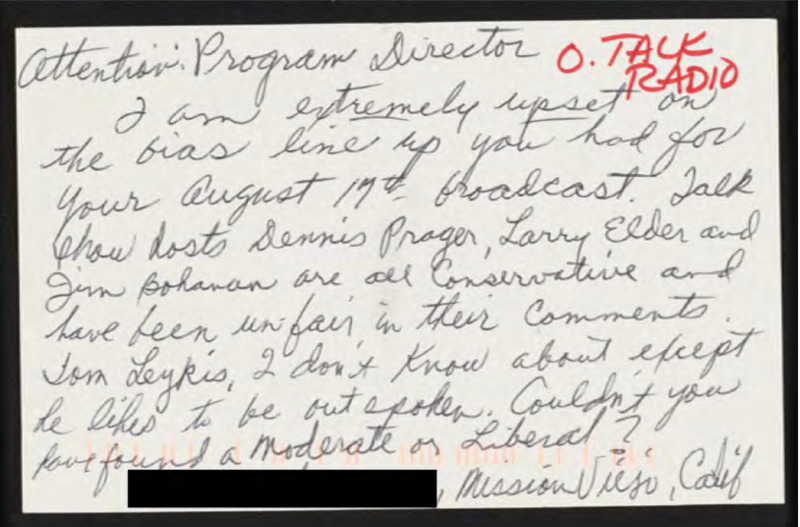 Attention: Program Director
O. TALK
RADIO
I am extremely upset on
the bias line up you had for
your August 17th broadcast. Talk
show hosts Dennis Prager, Larry Elder and
Jim Bohanan are all Conservative and
have been unfair in their comments.
Tom Leykis, I don't know about except
he likes to be outspoken. Couldn't you
have found a Moderate or Liberal?
, Mission Viejo, Calif